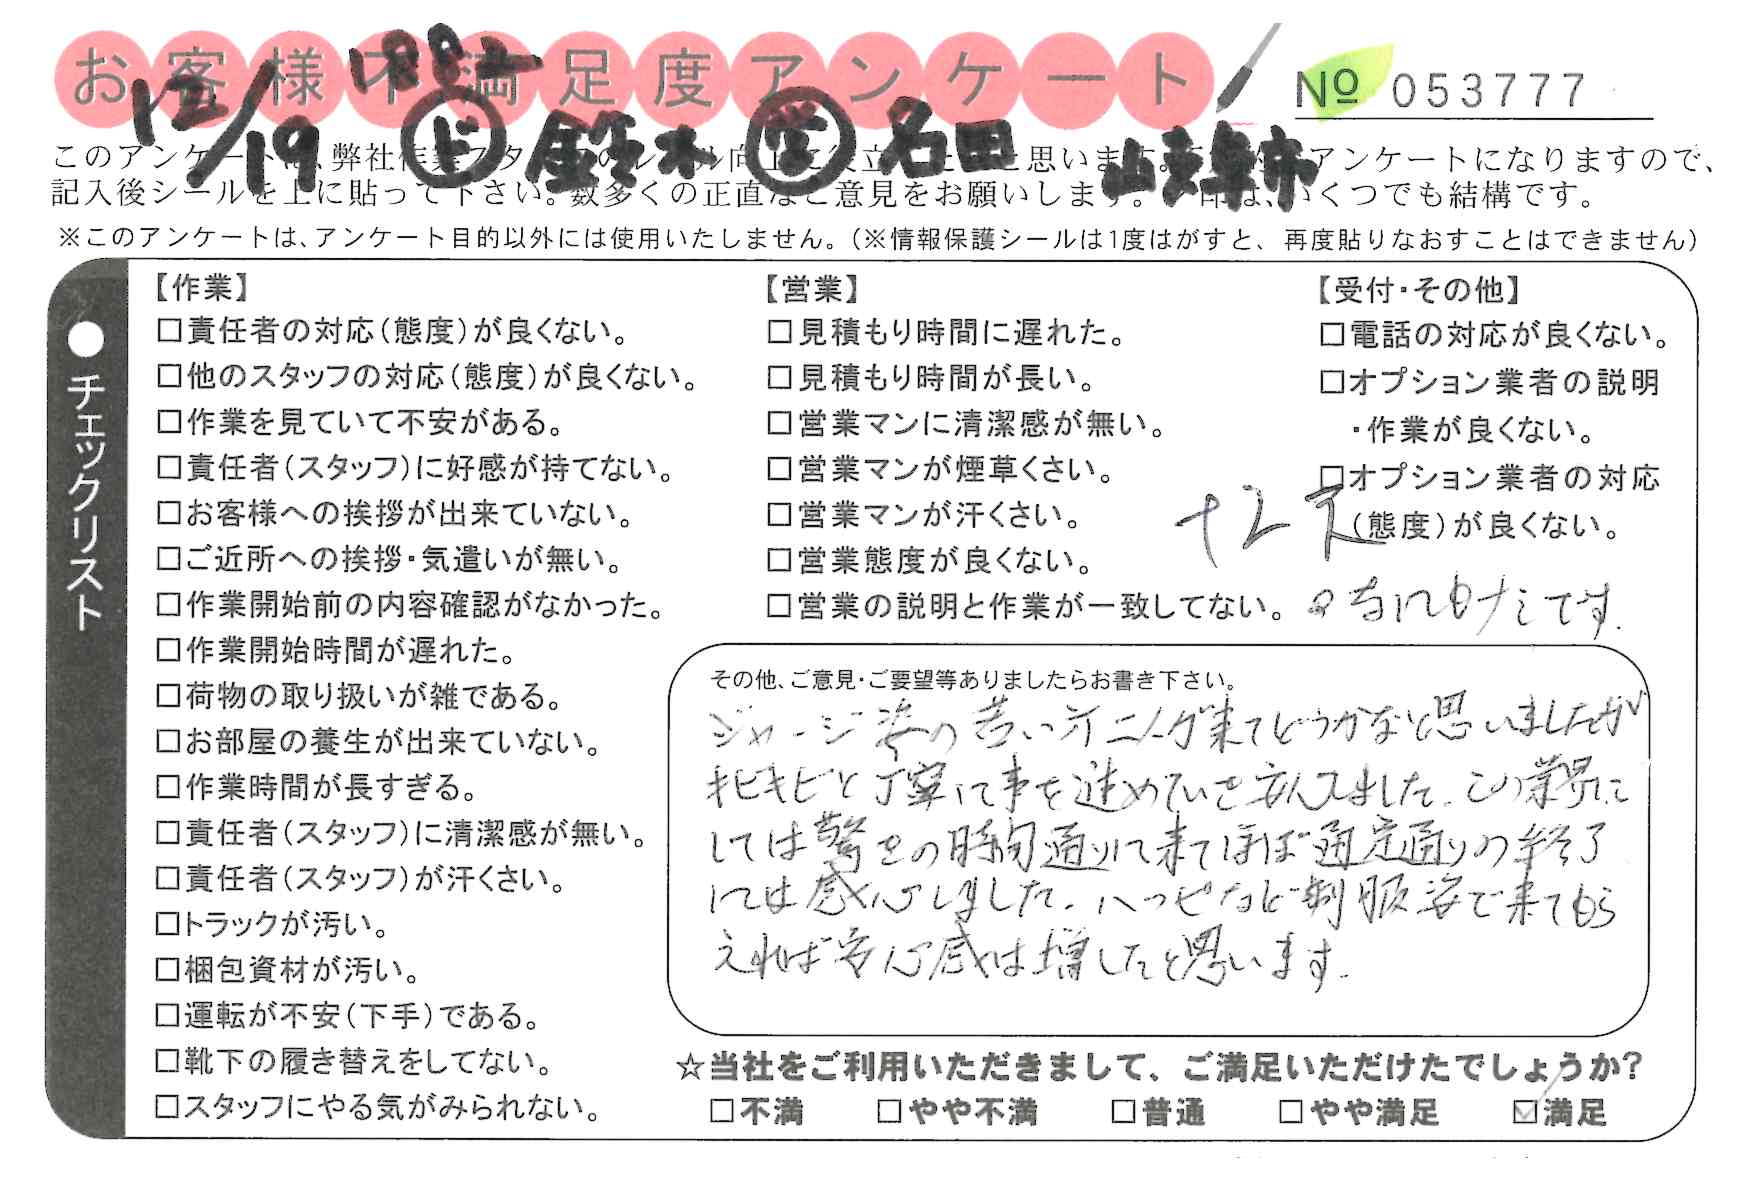 お客様不満足度アンケート
№ 053777
12/19 ド 鈴木 営 名田 岐阜市
このアンケートは、弊社作業スタッフのレベル向上に役立 と思いま アンケートになりますので、
記入後シールを上に貼って下さい。数多くの正直なご意見をお願いします。 印は、いくつでも結構です。
※このアンケートは、アンケート目的以外には使用いたしません。(※情報保護シールは1度はがすと、再度貼りなおすことはできません)
●チェックリスト
【作業】
□責任者の対応(態度)が良くない。
□他のスタッフの対応(態度)が良くない。
□作業を見ていて不安がある。
□責任者(スタッフ)に好感が持てない。
□お客様への挨拶が出来ていない。
□ご近所への挨拶・気遣いが無い。
□作業開始前の内容確認がなかった。
□作業開始時間が遅れた。
□荷物の取り扱いが雑である。
□お部屋の養生が出来ていない。
□作業時間が長すぎる。
□責任者(スタッフ)に清潔感が無い。
□責任者(スタッフ)が汗くさい。
□トラックが汚い。
□梱包資材が汚い。
□運転が不安(下手)である。
□靴下の履き替えをしてない。
□スタッフにやる気がみられない。
【営業】
□見積もり時間に遅れた。
□見積もり時間が長い。
□営業マンに清潔感が無い。
□営業マンが煙草くさい。
□営業マンが汗くさい。
□営業態度が良くない。
□営業の説明と作業が一致してない。
【受付・その他】
□電話の対応が良くない。
□オプション業者の説明
・作業が良くない。
□オプション業者の対応
(態度)が良くない。
なし
です.
その他、ご意見・ご要望等ありましたらお書き下さい。
ジャージ姿の若い方二人が来てどうかなと思いましたが
キビキビと丁寧に事を進めていき ました。この業界に
しては驚きの時間通りに来てほぼ 定通りの終了
には感心しました。ハッピなど制服姿で来てもら
えれば安心感は増したと思います.
☆当社をご利用いただきまして、ご満足いただけたでしょうか?
□不満 □やや不満 □普通 □やや満足 ☑満足